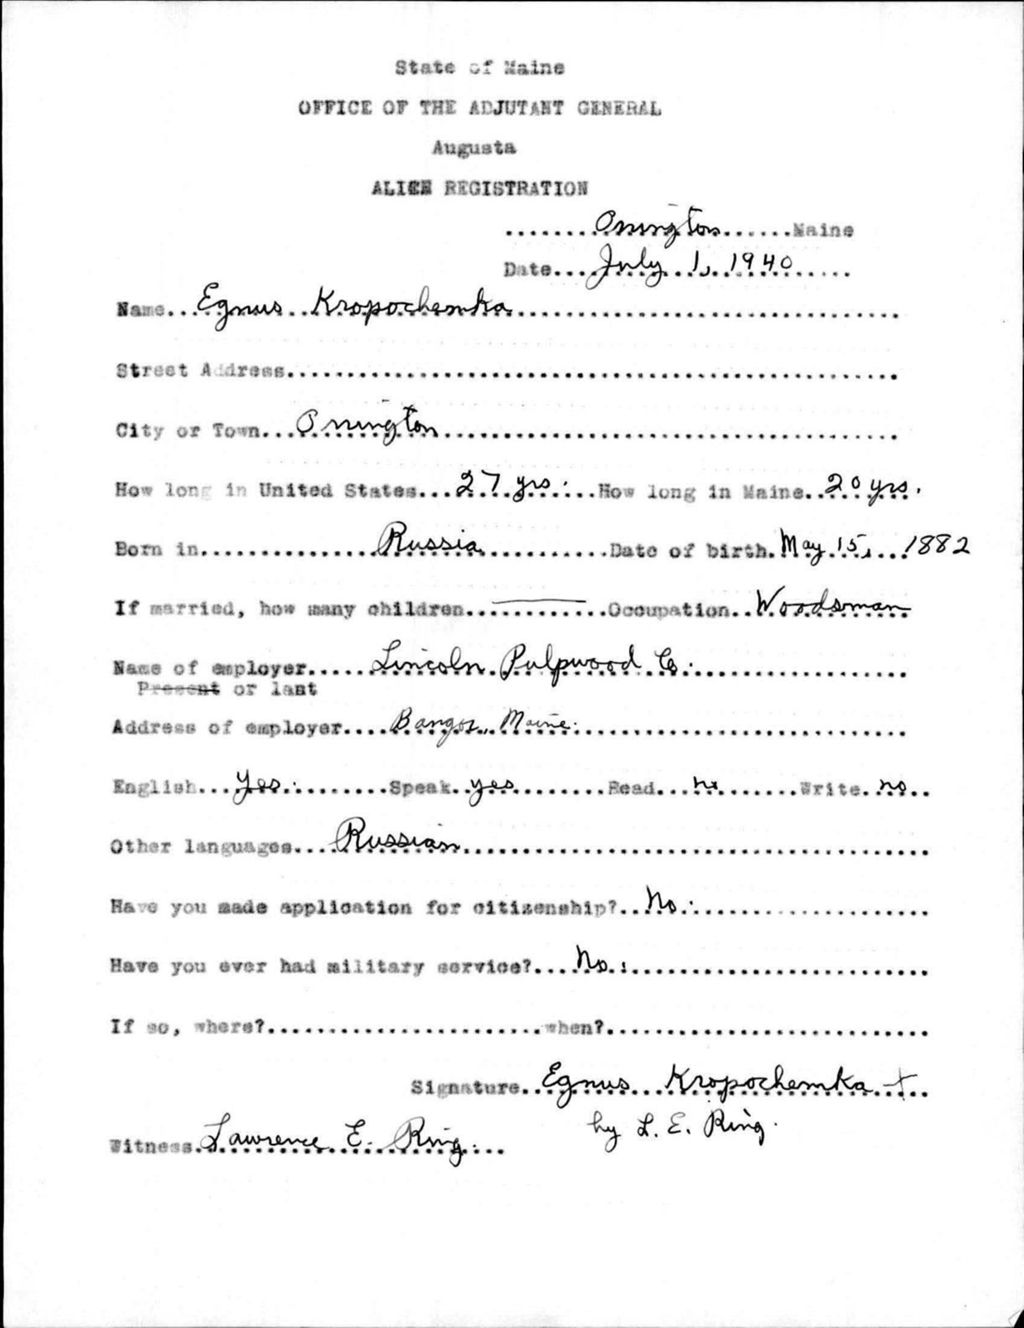 State of Maine
OFFICE OF THE ADJUTANT GENERAL
Augusta
ALIEN REGISTRATION
........Orrington.......Maine
Date....July 1, 1940......
Name...Egnus Kropochemka.................................
Street Address..................................................
City or Town...Orrington.......................................
How long in United States...27 yrs....How long in Maine..20 yrs.
Born in...............Russia............Date of birth.May 15,...1882
If married, how many children...————...Occupation..Woodsman
Name of employer.....Lincoln Pulpwood Co..................
Present or last
Address of employer....Bangor, Maine..........................
English...Yes..........Speak..yes.........Read...no........Write.no..
Other languages....Russian.......................................
Have you made application for citizenship?..No..................
Have you ever had military service?....No.......................
If so, where?.......................when?..........................
Signature..Egnus Kropochemka +..
by L. E. Ring.
Witness.Lawrence E. Ring....